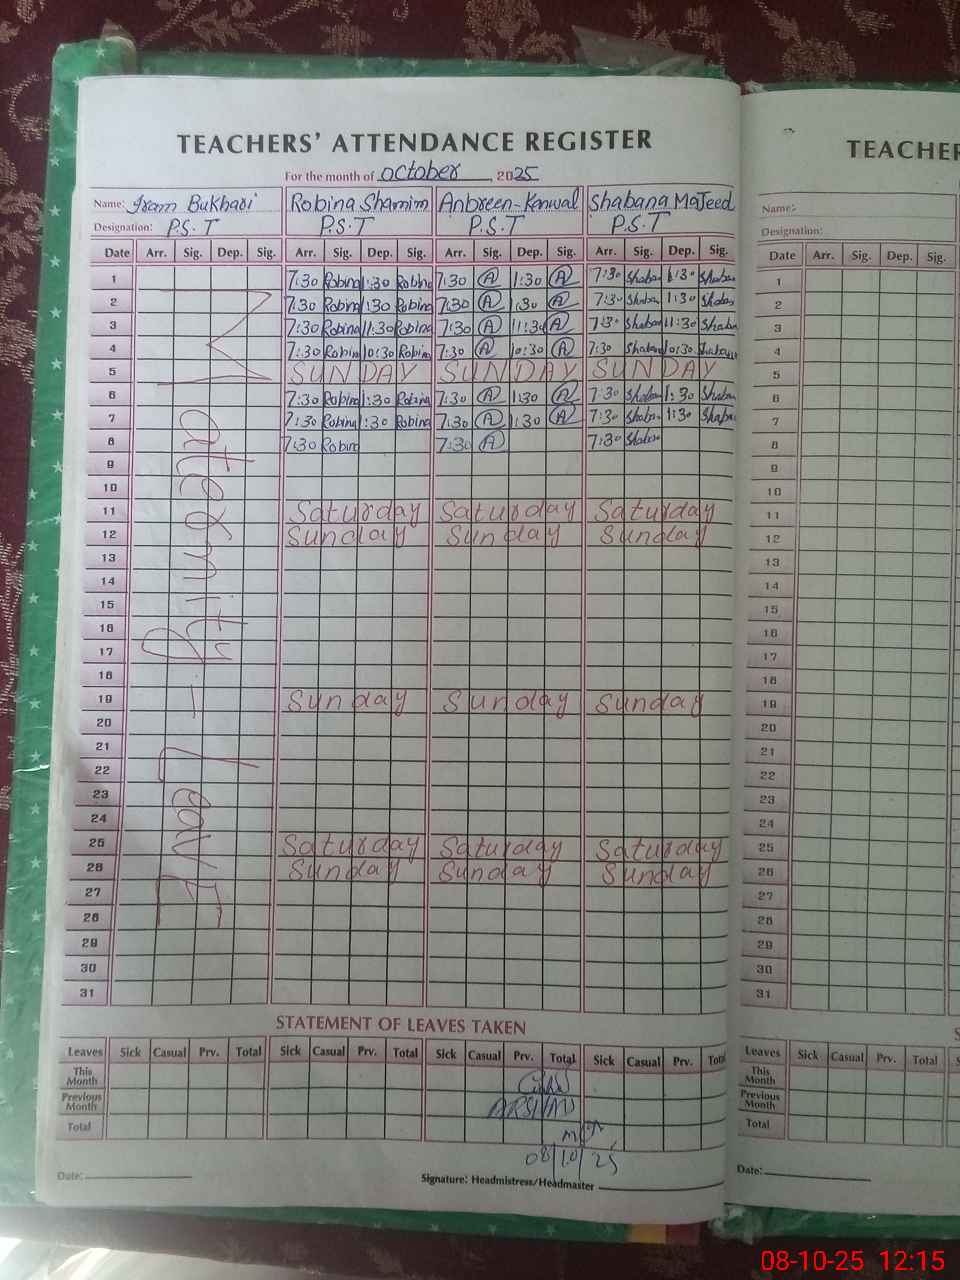 TEACHERS' ATTENDANCE REGISTER
For the month of October, 2025
Name: Iram Bukhari Robina Shamim Anbreen-Kanwal Shabana Majeed
Designation: P.S.T P.S.T P.S.T P.S.T
Date Arr. Sig. Dep. Sig. Arr. Sig. Dep. Sig. Arr. Sig. Dep. Sig. Arr. Sig. Dep. Sig.
1 7:30 Robina 1:30 Robina 7:30 A 1:30 A 7:30 Shaban 1:30 Shaban
2 7:30 Robina 1:30 Robina 7:30 A 1:30 A 7:30 Shaban 1:30 Shaban
3 7:30 Robina 11:30 Robina 7:30 A 11:30 A 7:30 Shaban 11:30 Shaban
4 7:30 Robin 10:30 Robin 7:30 A 10:30 A 7:30 Shaban 10:30 Shabana
5 SUNDAY SUNDAY SUNDAY
6 7:30 Robina 1:30 Robina 7:30 A 1:30 A 7:30 Shaban 1:30 Shaban
7 7:30 Robina 1:30 Robina 7:30 A 1:30 A 7:30 Shaban 1:30 Shaban
8 7:30 Robina 7:30 A 7:30 Shaban
9
10
11 Saturday Saturday Saturday
12 Sunday Sunday Sunday
13
14
15
16
17
18
19 Sunday Sunday Sunday
20
21
22
23
24
25 Saturday Saturday Saturday
26 Sunday Sunday Sunday
27
28
29
30
31
Materenity - Leave
STATEMENT OF LEAVES TAKEN
Leaves Sick Casual Prv. Total Sick Casual Prv. Total Sick Casual Prv. Total Sick Casual Prv. Total
This Month
Previous Month
Total
ARSHAD
08/10/25
Date:
Signature: Headmistress/Headmaster
TEACHER
Name:-
Designation:
Date Arr. Sig. Dep. Sig.
1
2
3
4
5
6
7
8
9
10
11
12
13
14
15
16
17
18
19
20
21
22
23
24
25
26
27
28
29
30
31
S
Leaves Sick Casual Prv. Total S
This Month
Previous Month
Total
Date:
08-10-25 12:15